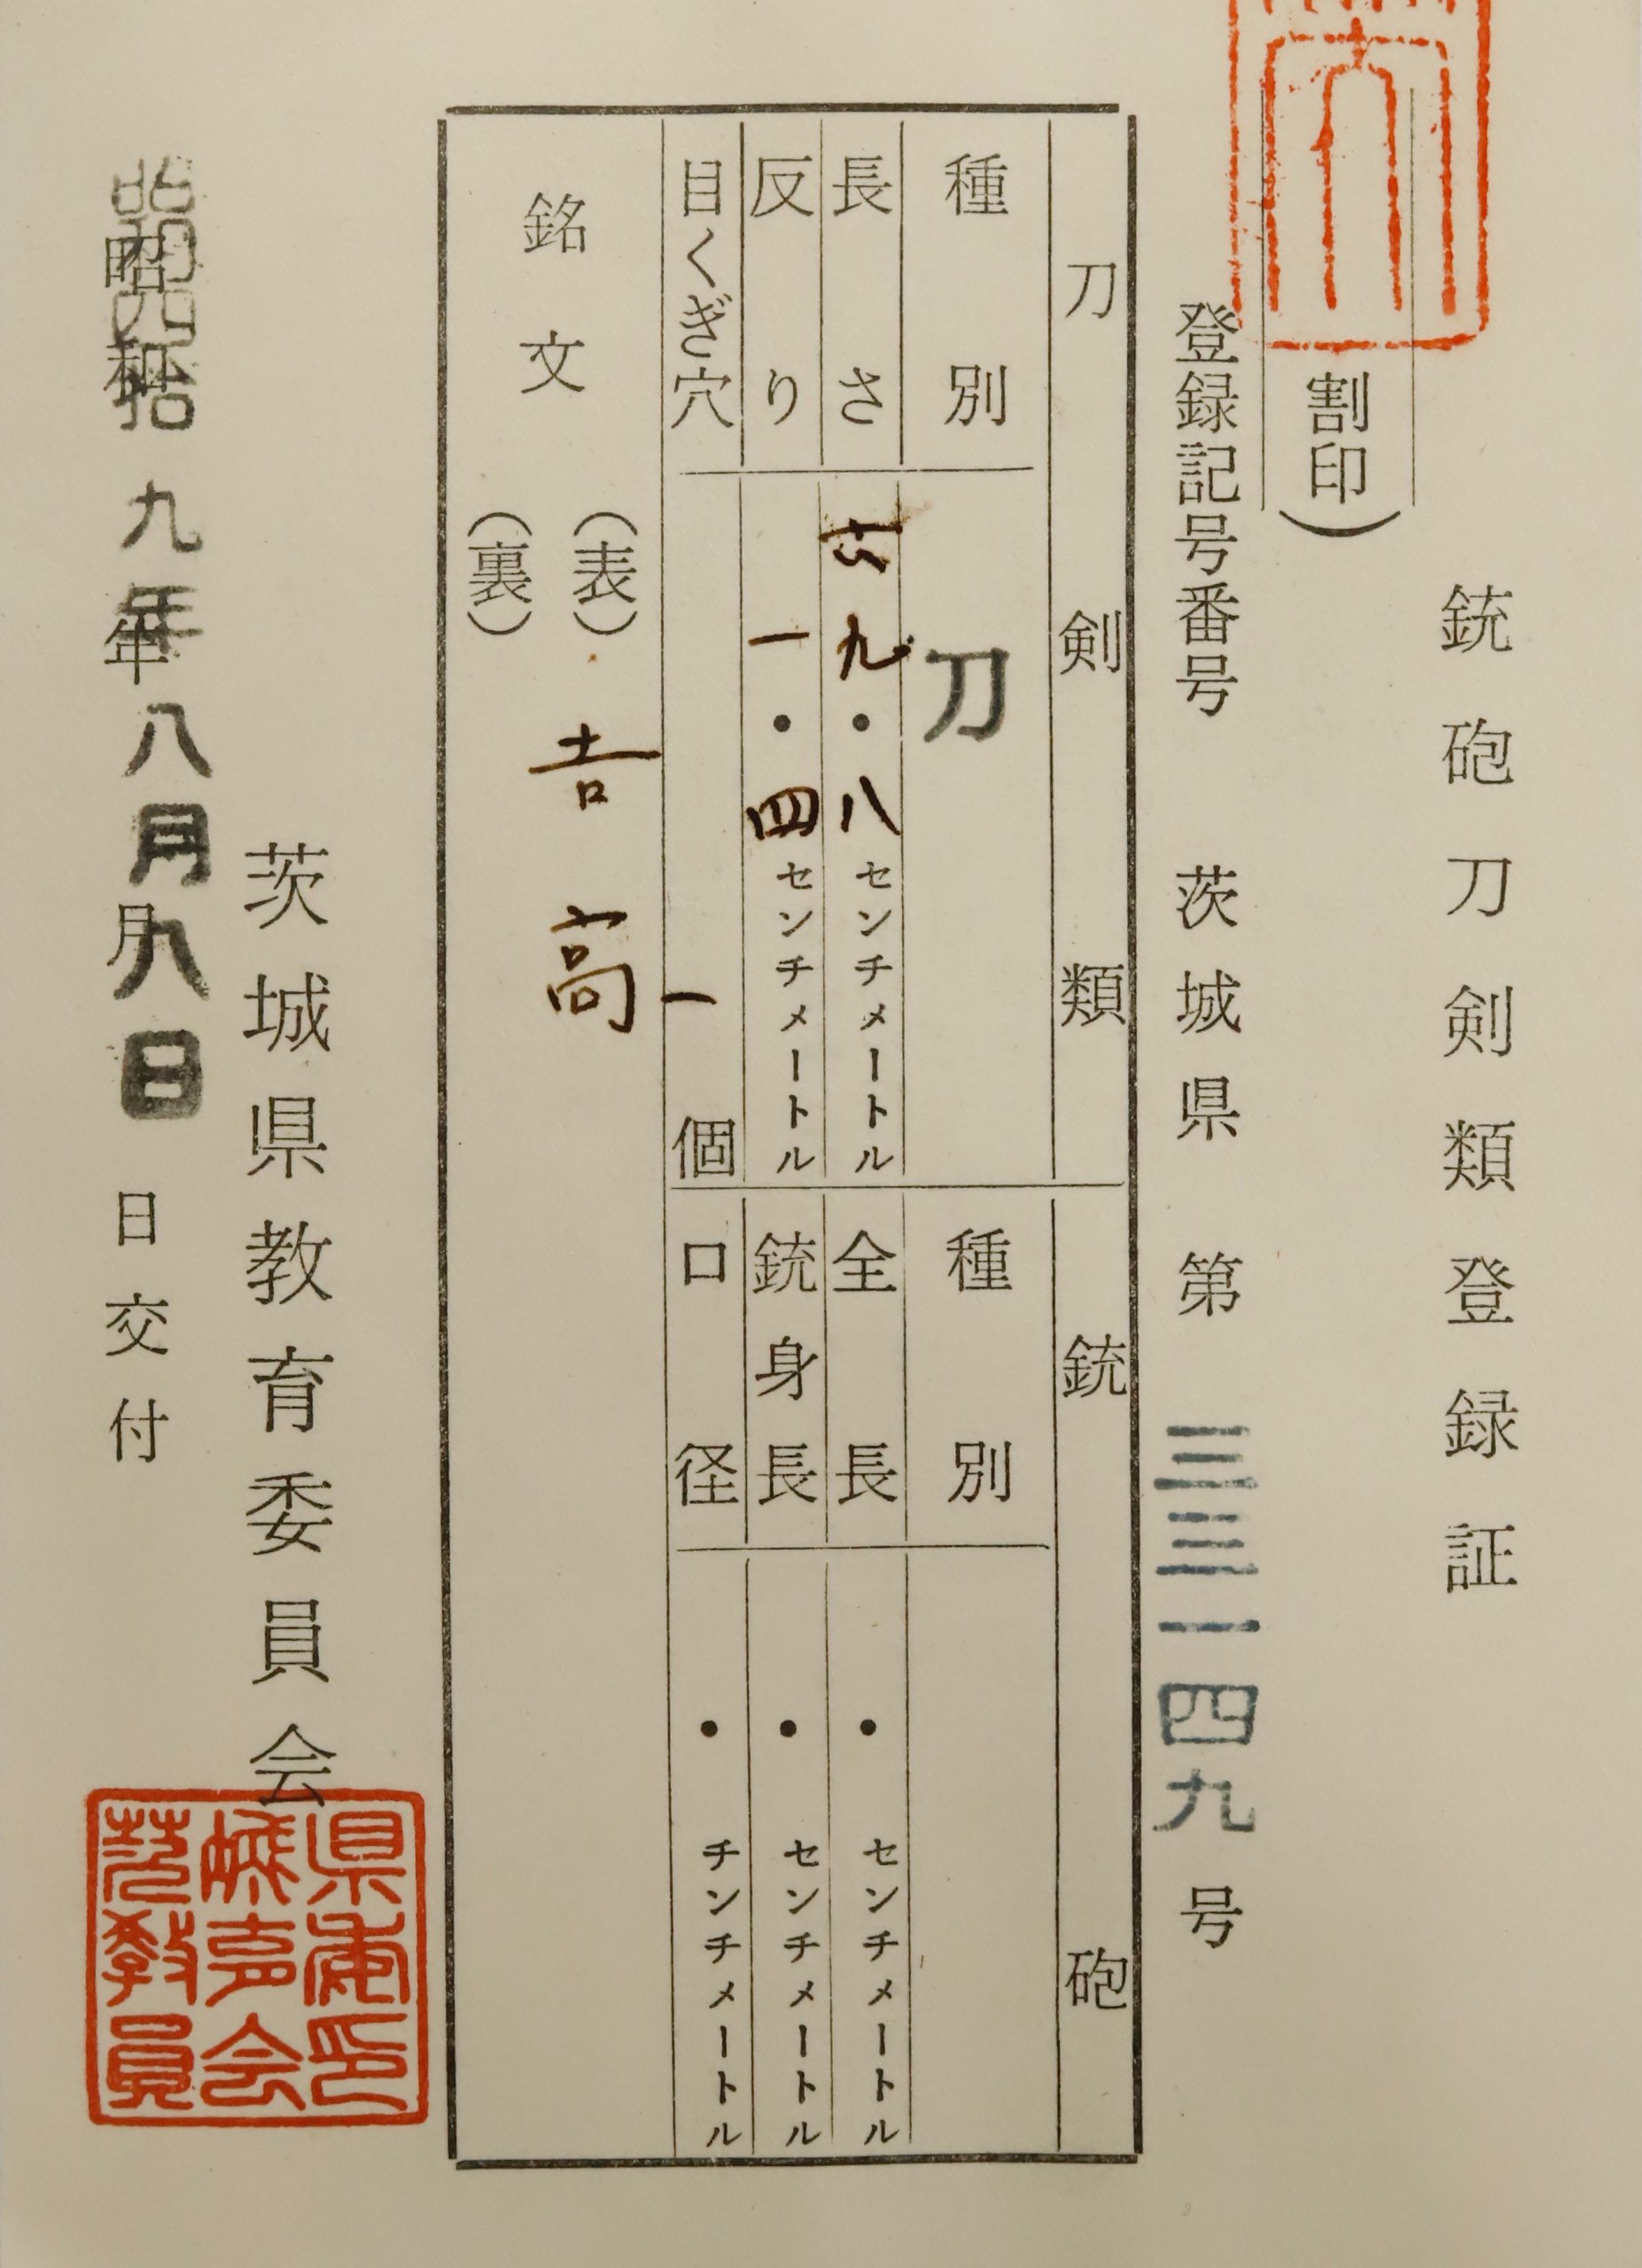 銃砲刀剣類登録証
(割印)
登録記号番号 茨城県 第 三三一四九 号
刀剣類
種別 刀
長さ 六九・八センチメートル
反り 一・四センチメートル
目くぎ穴 一個
銘文
(表) 吉高
(裏)
銃砲
種別
全長 ・ センチメートル
銃身長 ・ センチメートル
口径 ・ チンチメートル
茨城県教育委員会
昭和四拾九年八月八日
昭和 年 月 日交付